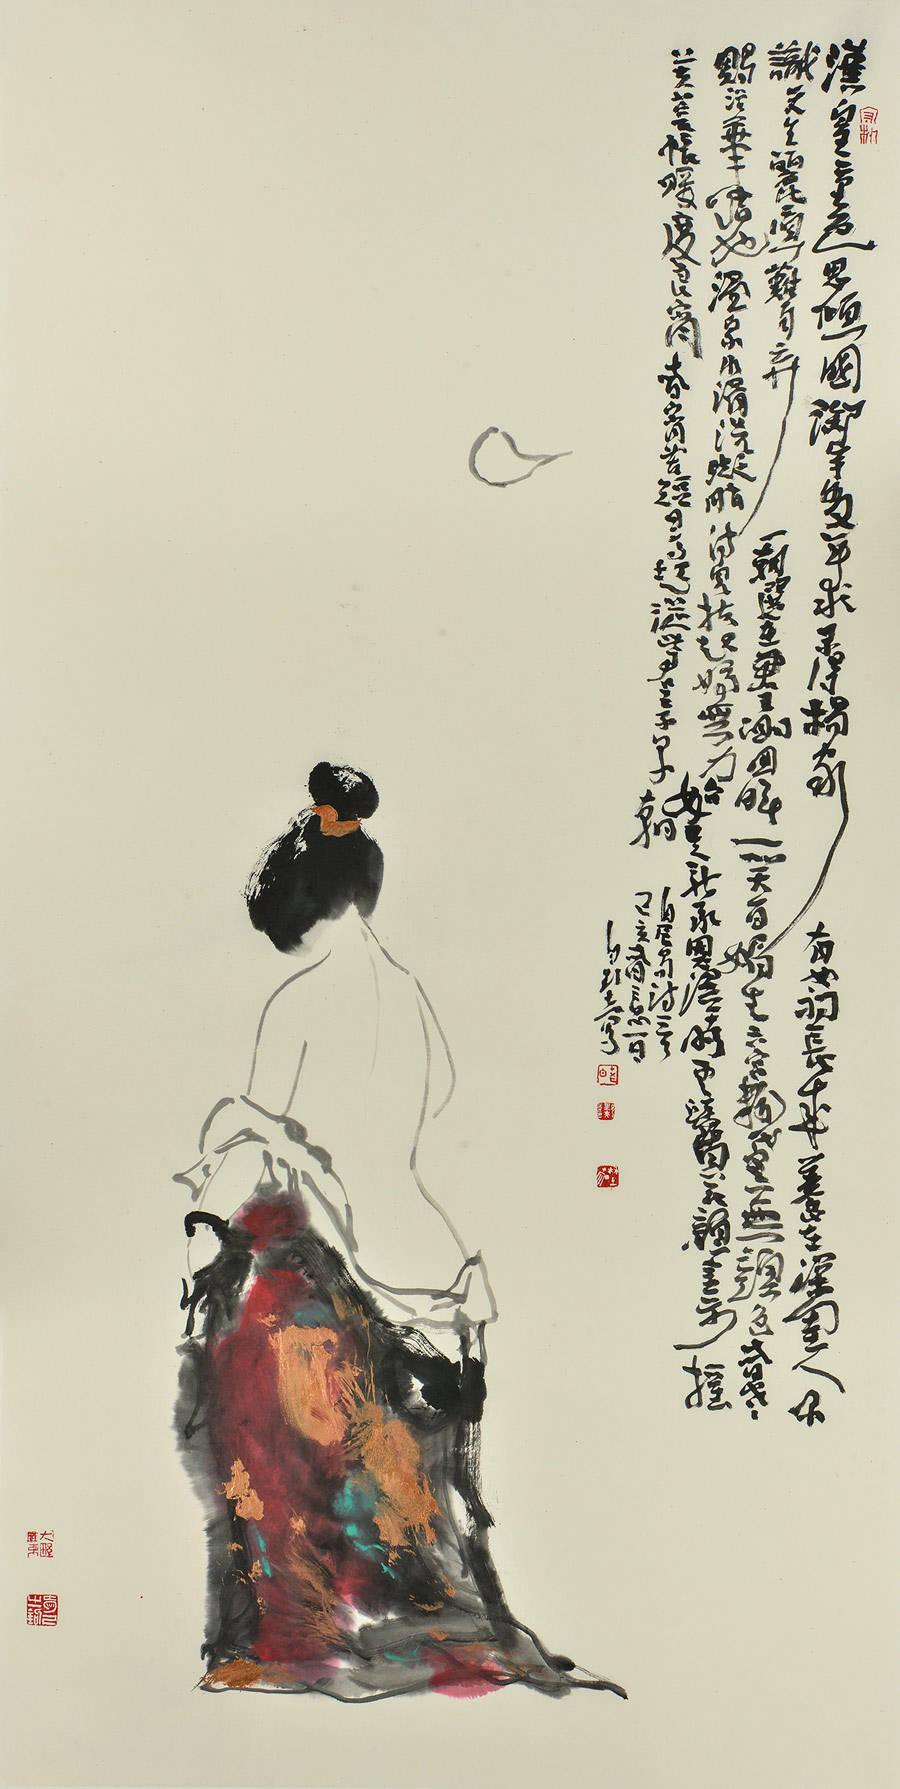 漢皇重色思傾國御宇多年求不得楊家有女初長成養在深閨人不
識天生麗質難自弃一朝選在君王側回眸一笑百媚生六宮粉黛無顏色春寒
賜浴華清池溫泉水滑洗凝脂侍兒扶起嬌無力始是新承恩澤時雲鬢花顏金步搖
芙蓉帳暖度良宵春宵苦短日高起從此君王不早朝
白居易詩
己亥春一日